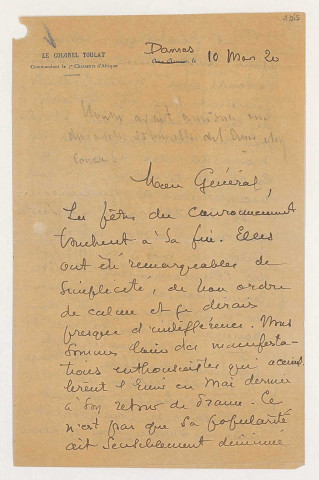 LE COLONEL TOULAT
Commandant le 1er Chasseurs d'Afrique
Damas
le 10 Mars 20
Mon Général,
Les fêtes du couronnement
touchent à sa fin. Elles
ont été remarquables de
simplicité, de bon ordre
de calme et je dirais
presque d'indifférence. Nous
sommes loin des manifesta-
tions enthousiastes qui accueil-
lèrent l'Emir en Mai dernier
à son retour de France. Ce
n'est pas que sa popularité
ait sensiblement diminué